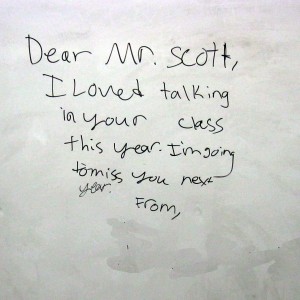 Dear Mr. Scott,
I Loved talking
in your class
this year. I'm going
to miss you next
year.
From,